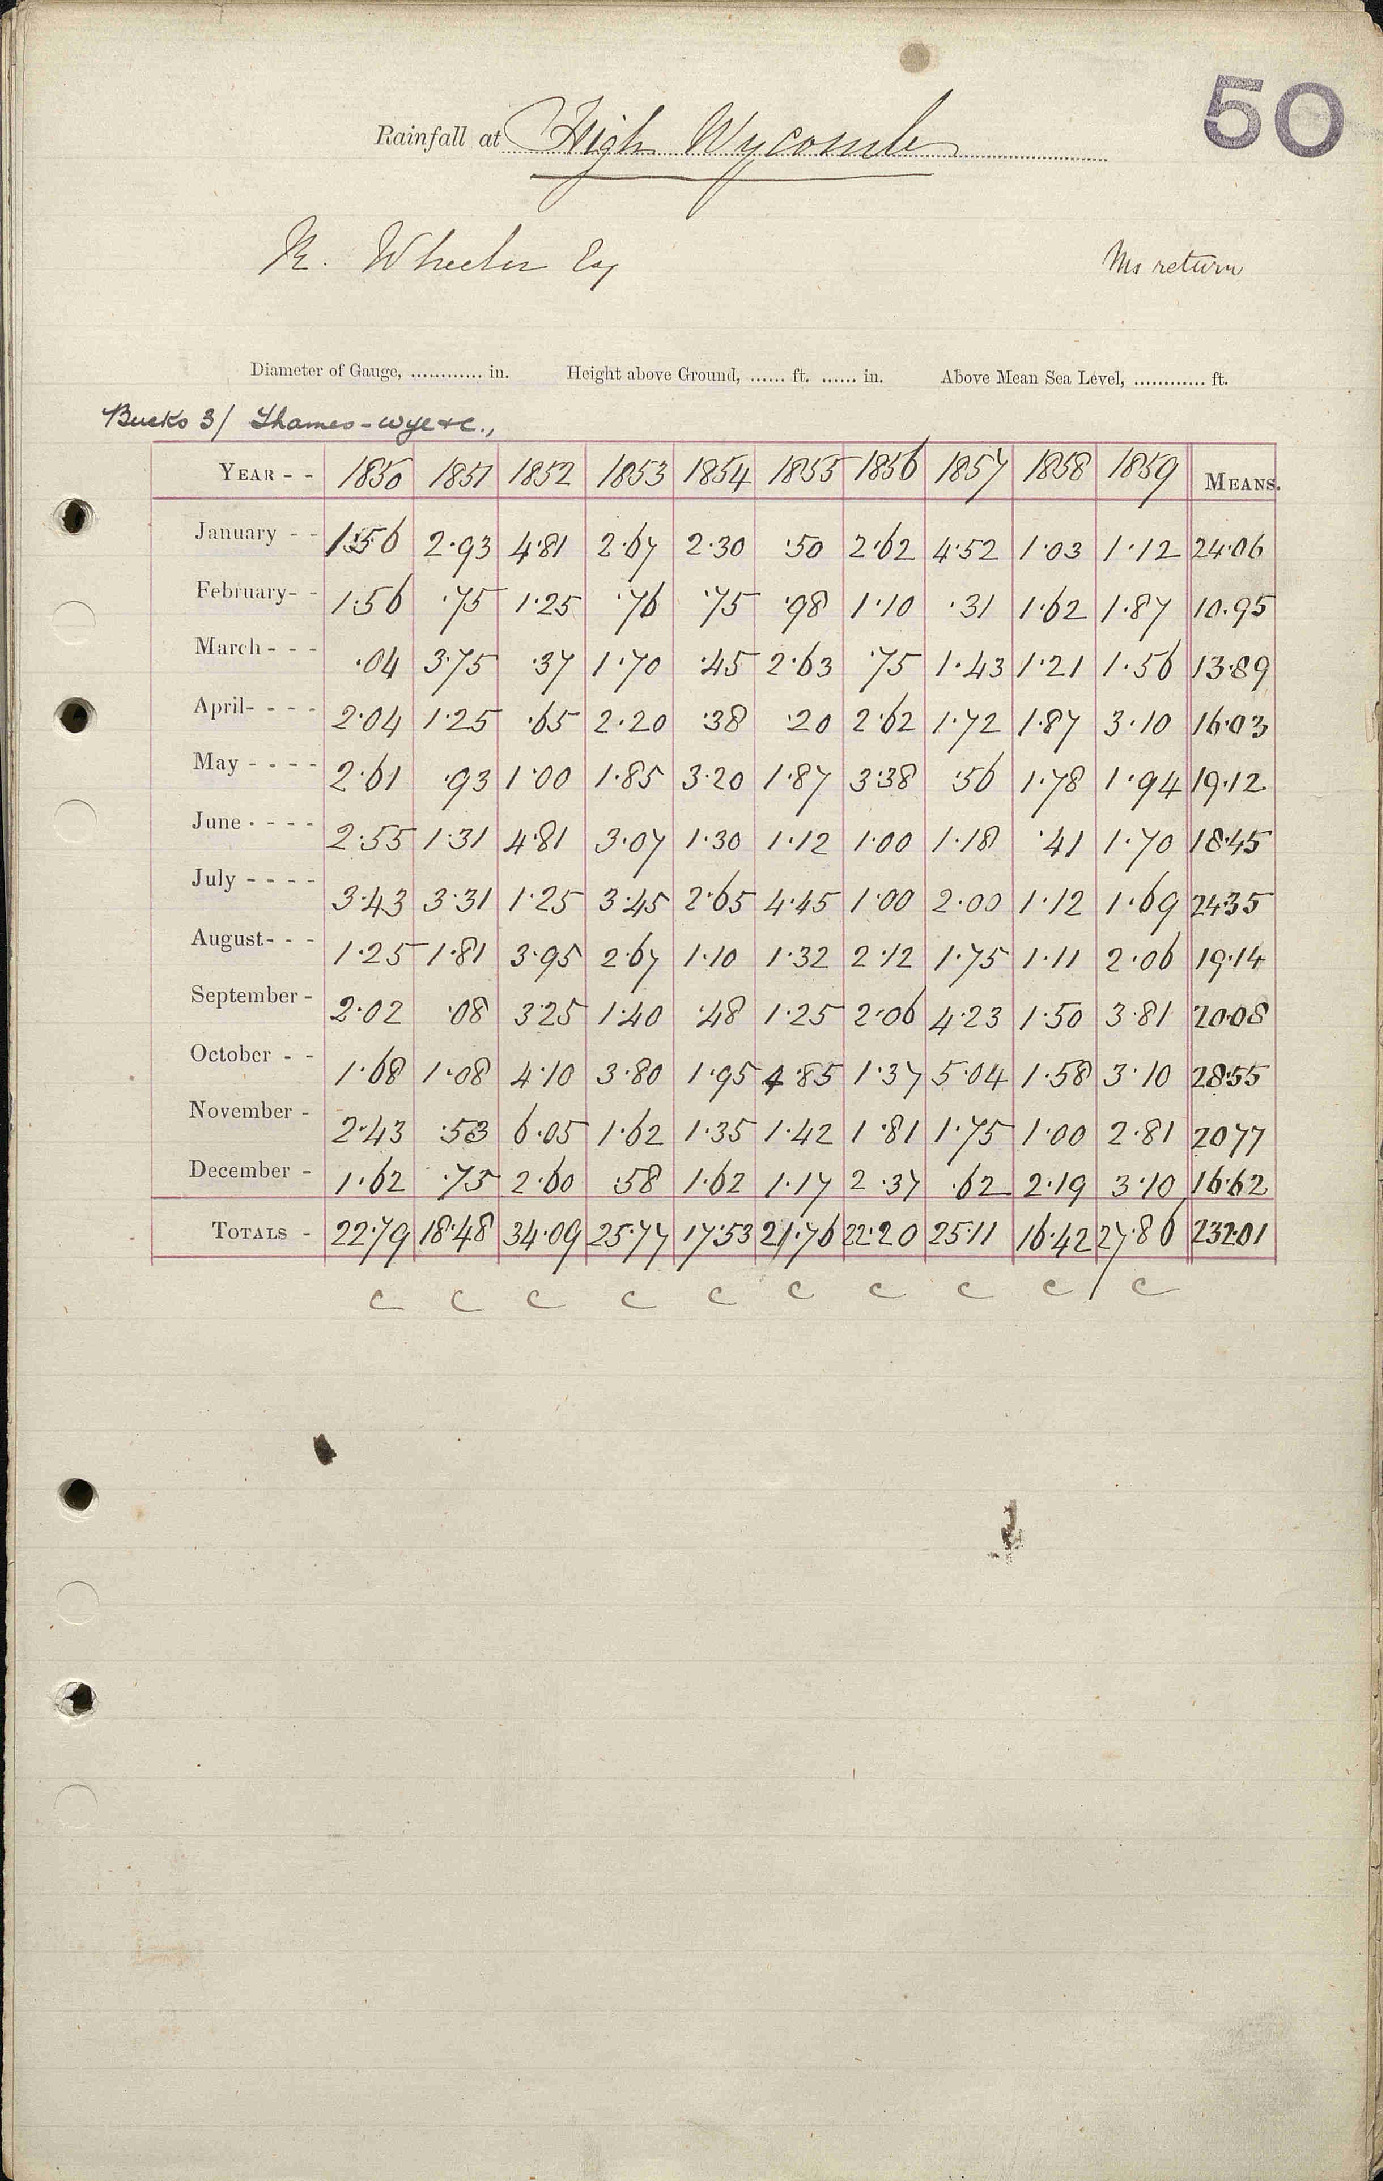 50
Rainfall at High Wycombe
R. Wheeler Esq Ms return
Diameter of Gauge, ............ in. Height above Ground, ...... ft. ...... in. Above Mean Sea Level, ............ ft.
Bucks 3/ Thames - Wye &c.,
YEAR - - 1850 1851 1852 1853 1854 1855 1856 1857 1858 1859 MEANS.
January - - 1.56 2.93 4.81 2.67 2.30 .50 2.62 4.52 1.03 1.12 24.06
February- - 1.56 .75 1.25 .76 .75 .98 1.10 .31 1.62 1.87 10.95
March - - - .04 3.75 .37 1.70 .45 2.63 .75 1.43 1.21 1.56 13.89
April- - - - 2.04 1.25 .65 2.20 .38 .20 2.62 1.72 1.87 3.10 16.03
May - - - - 2.61 .93 1.00 1.85 3.20 1.87 3.38 .56 1.78 1.94 19.12
June - - - - 2.55 1.31 4.81 3.07 1.30 1.12 1.00 1.18 .41 1.70 18.45
July - - - - 3.43 3.31 1.25 3.45 2.65 4.45 1.00 2.00 1.12 1.69 24.35
August- - - 1.25 1.81 3.95 2.67 1.10 1.32 2.12 1.75 1.11 2.06 19.14
September - 2.02 .08 3.25 1.40 .48 1.25 2.06 4.23 1.50 3.81 20.08
October - - 1.68 1.08 4.10 3.80 1.95 4.85 1.37 5.04 1.58 3.10 28.55
November - 2.43 .53 6.05 1.62 1.35 1.42 1.81 1.75 1.00 2.81 20.77
December - 1.62 .75 2.60 .58 1.62 1.17 2.37 .62 2.19 3.10 16.62
TOTALS - 22.79 18.48 34.09 25.77 17.53 21.76 22.20 25.11 16.42 27.86 232.01
c c c c c c c c c c